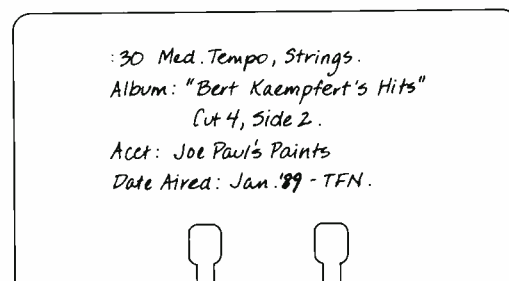 :30 Med. Tempo, Strings.
Album: "Bert Kaempfert's Hits"
Cut 4, Side 2.
Acct: Joe Paul's Paints
Date Aired: Jan. '89 - TFN.